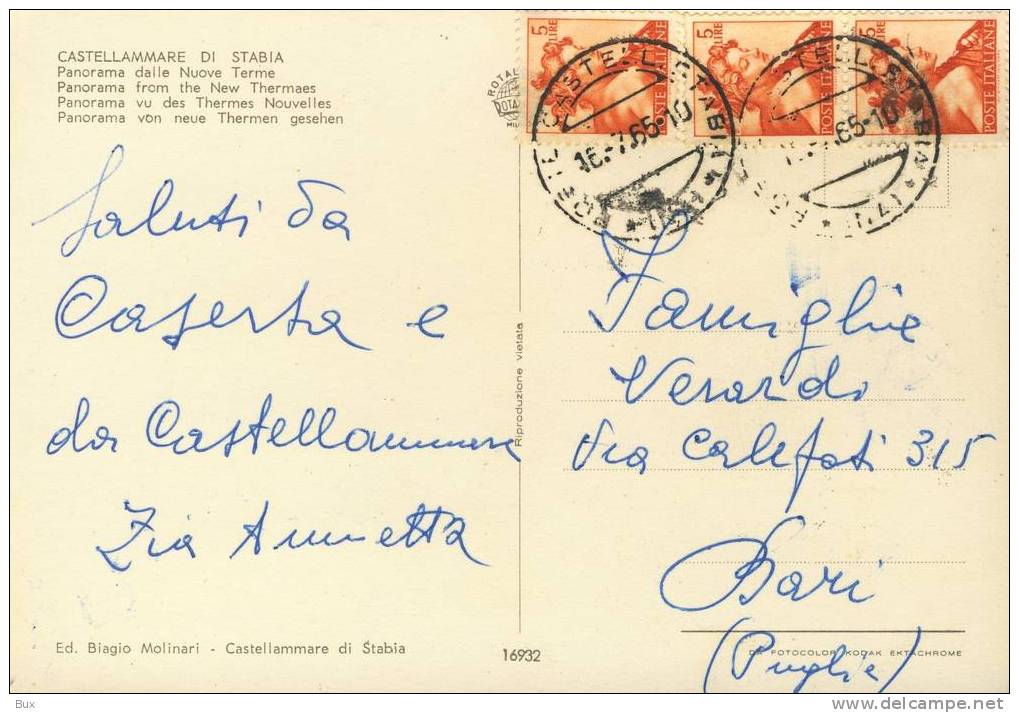 CASTELLAMMARE DI STABIA
Panorama dalle Nuove Terme
Panorama from the New Thermaes
Panorama vu des Thermes Nouvelles
Panorama von neue Thermen gesehen
5 LIRE
POSTE ITALIANE
5 LIRE
POSTE ITALIANE
5 LIRE
POSTE ITALIANE
16.-7.65-10
Saluti da
Caserta e
da Castellammare
Zia Annetta
Riproduzione vietata
Famiglia
Verardi
Via Calefati 315
Bari
(Puglia)
Ed. Biagio Molinari - Castellammare di Stabia
16932
DA FOTOCOLOR KODAK EKTACHROME
Bux
delcampe.net